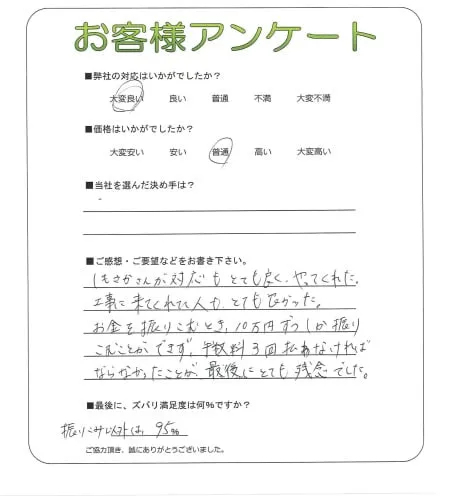 お客様アンケート
■弊社の対応はいかがでしたか?
大変良い 良い 普通 不満 大変不満
■価格はいかがでしたか?
大変安い 安い 普通 高い 大変高い
■当社を選んだ決め手は?
■ご感想・ご要望などをお書き下さい。
しもさかさんが対応もとても良く、やってくれた。
工事に来てくれた人も、とても良かった。
お金を振りこむとき、10万円ずつしか振り
こむことができず、手数料3回払わなければ
ならなかったことが、最後にとても残念でした。
■最後に、ズバリ満足度は何%ですか?
振りこみ以外は、95%
ご協力頂き、誠にありがとうございました。